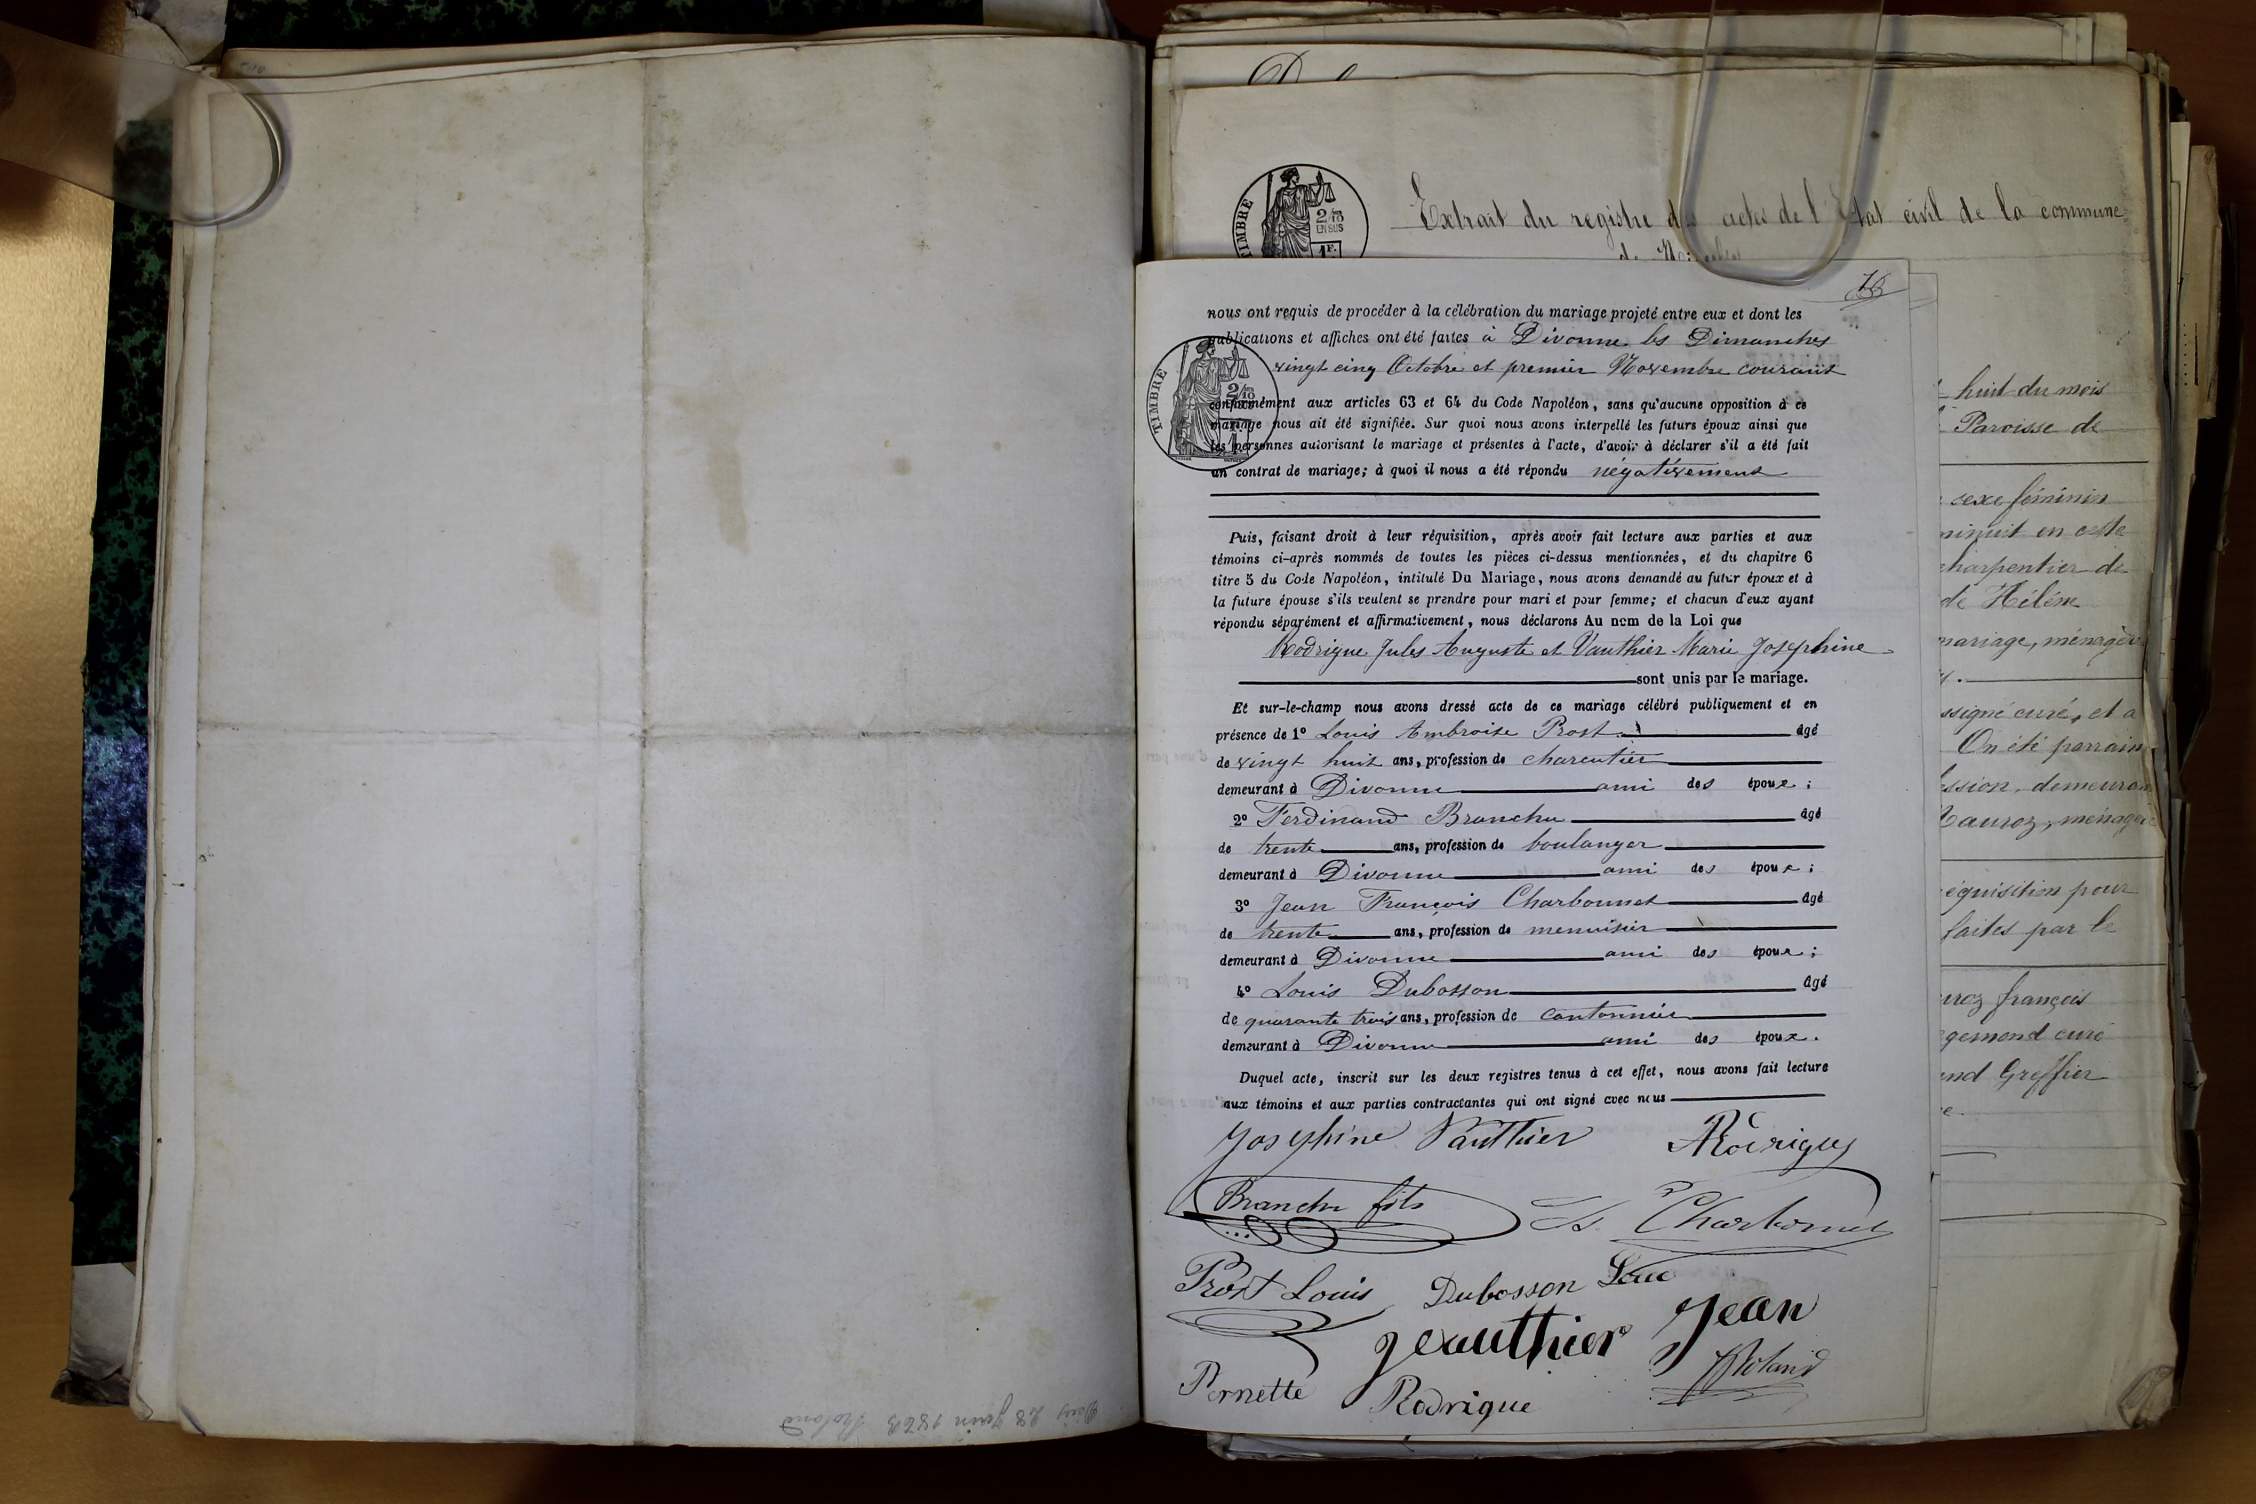 Extrait du registre des actes de l'Etat civil de la commune
TIMBRE
2/10
EN SUS
1F.
nous ont requis de procéder à la célébration du mariage projeté entre eux et dont les
publications et affiches ont été faites à Divonne les Dimanches
vingt cinq Octobre et premier Novembre courant
TIMBRE
2/10
conformément aux articles 63 et 64 du Code Napoléon, sans qu'aucune opposition à ce
mariage nous ait été signifiée. Sur quoi nous avons interpellé les futurs époux ainsi que
les personnes autorisant le mariage et présentes à l'acte, d'avoir à déclarer s'il a été fait
un contrat de mariage; à quoi il nous a été répondu négativement
Puis, faisant droit à leur réquisition, après avoir fait lecture aux parties et aux
témoins ci-après nommés de toutes les pièces ci-dessus mentionnées, et du chapitre 6
titre 5 du Code Napoléon, intitulé Du Mariage, nous avons demandé au futur époux et à
la future épouse s'ils veulent se prendre pour mari et pour femme; et chacun d'eux ayant
répondu séparément et affirmativement, nous déclarons Au nom de la Loi que
Rodrigue Jules Auguste et Vauthier Marie Josephine
sont unis par le mariage.
Et sur-le-champ nous avons dressé acte de ce mariage célébré publiquement et en
présence de 1º Louis Ambroise Prost âgé
de vingt huit ans, profession de charcutier
demeurant à Divonne ami des époux;
2º Ferdinand Branchu âgé
de trente ans, profession de boulanger
demeurant à Divonne ami des époux;
3º Jean François Charbonnet âgé
de trente ans, profession de menuisier
demeurant à Divonne ami des époux;
4º Louis Dubosson âgé
de quarante trois ans, profession de cantonnier
demeurant à Divonne ami des époux.
Duquel acte, inscrit sur les deux registres tenus à cet effet, nous avons fait lecture
aux témoins et aux parties contractantes qui ont signé avec nous
Josephine Vauthier ARodrigue
Branchu fils Charbonnet
Prost Louis Dubosson
Jean
Pernette Rodrigue JRoland
huit du mois
Paroisse de
sexe féminin
minuit en cette
charpentier de
de Hélène
mariage, ménagère
ssigné curé, et a
On été parrain
ession, demeurant
Mauroz, ménagère
équisition pour
faites par le
uroz françois
gemond curé
and Greffier
28 Juin 1863 Roland